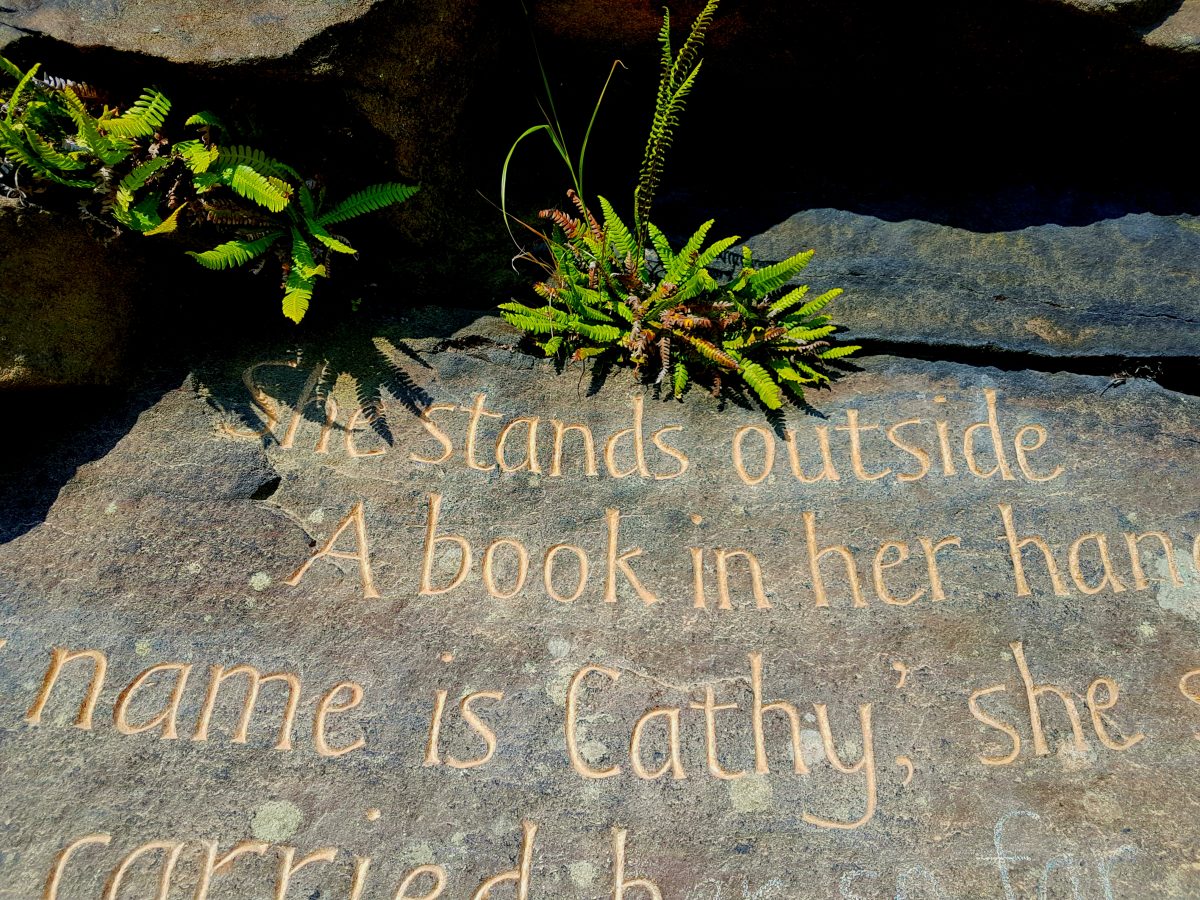 She stands outside
A book in her hand
name is Cathy', she
carried her so far